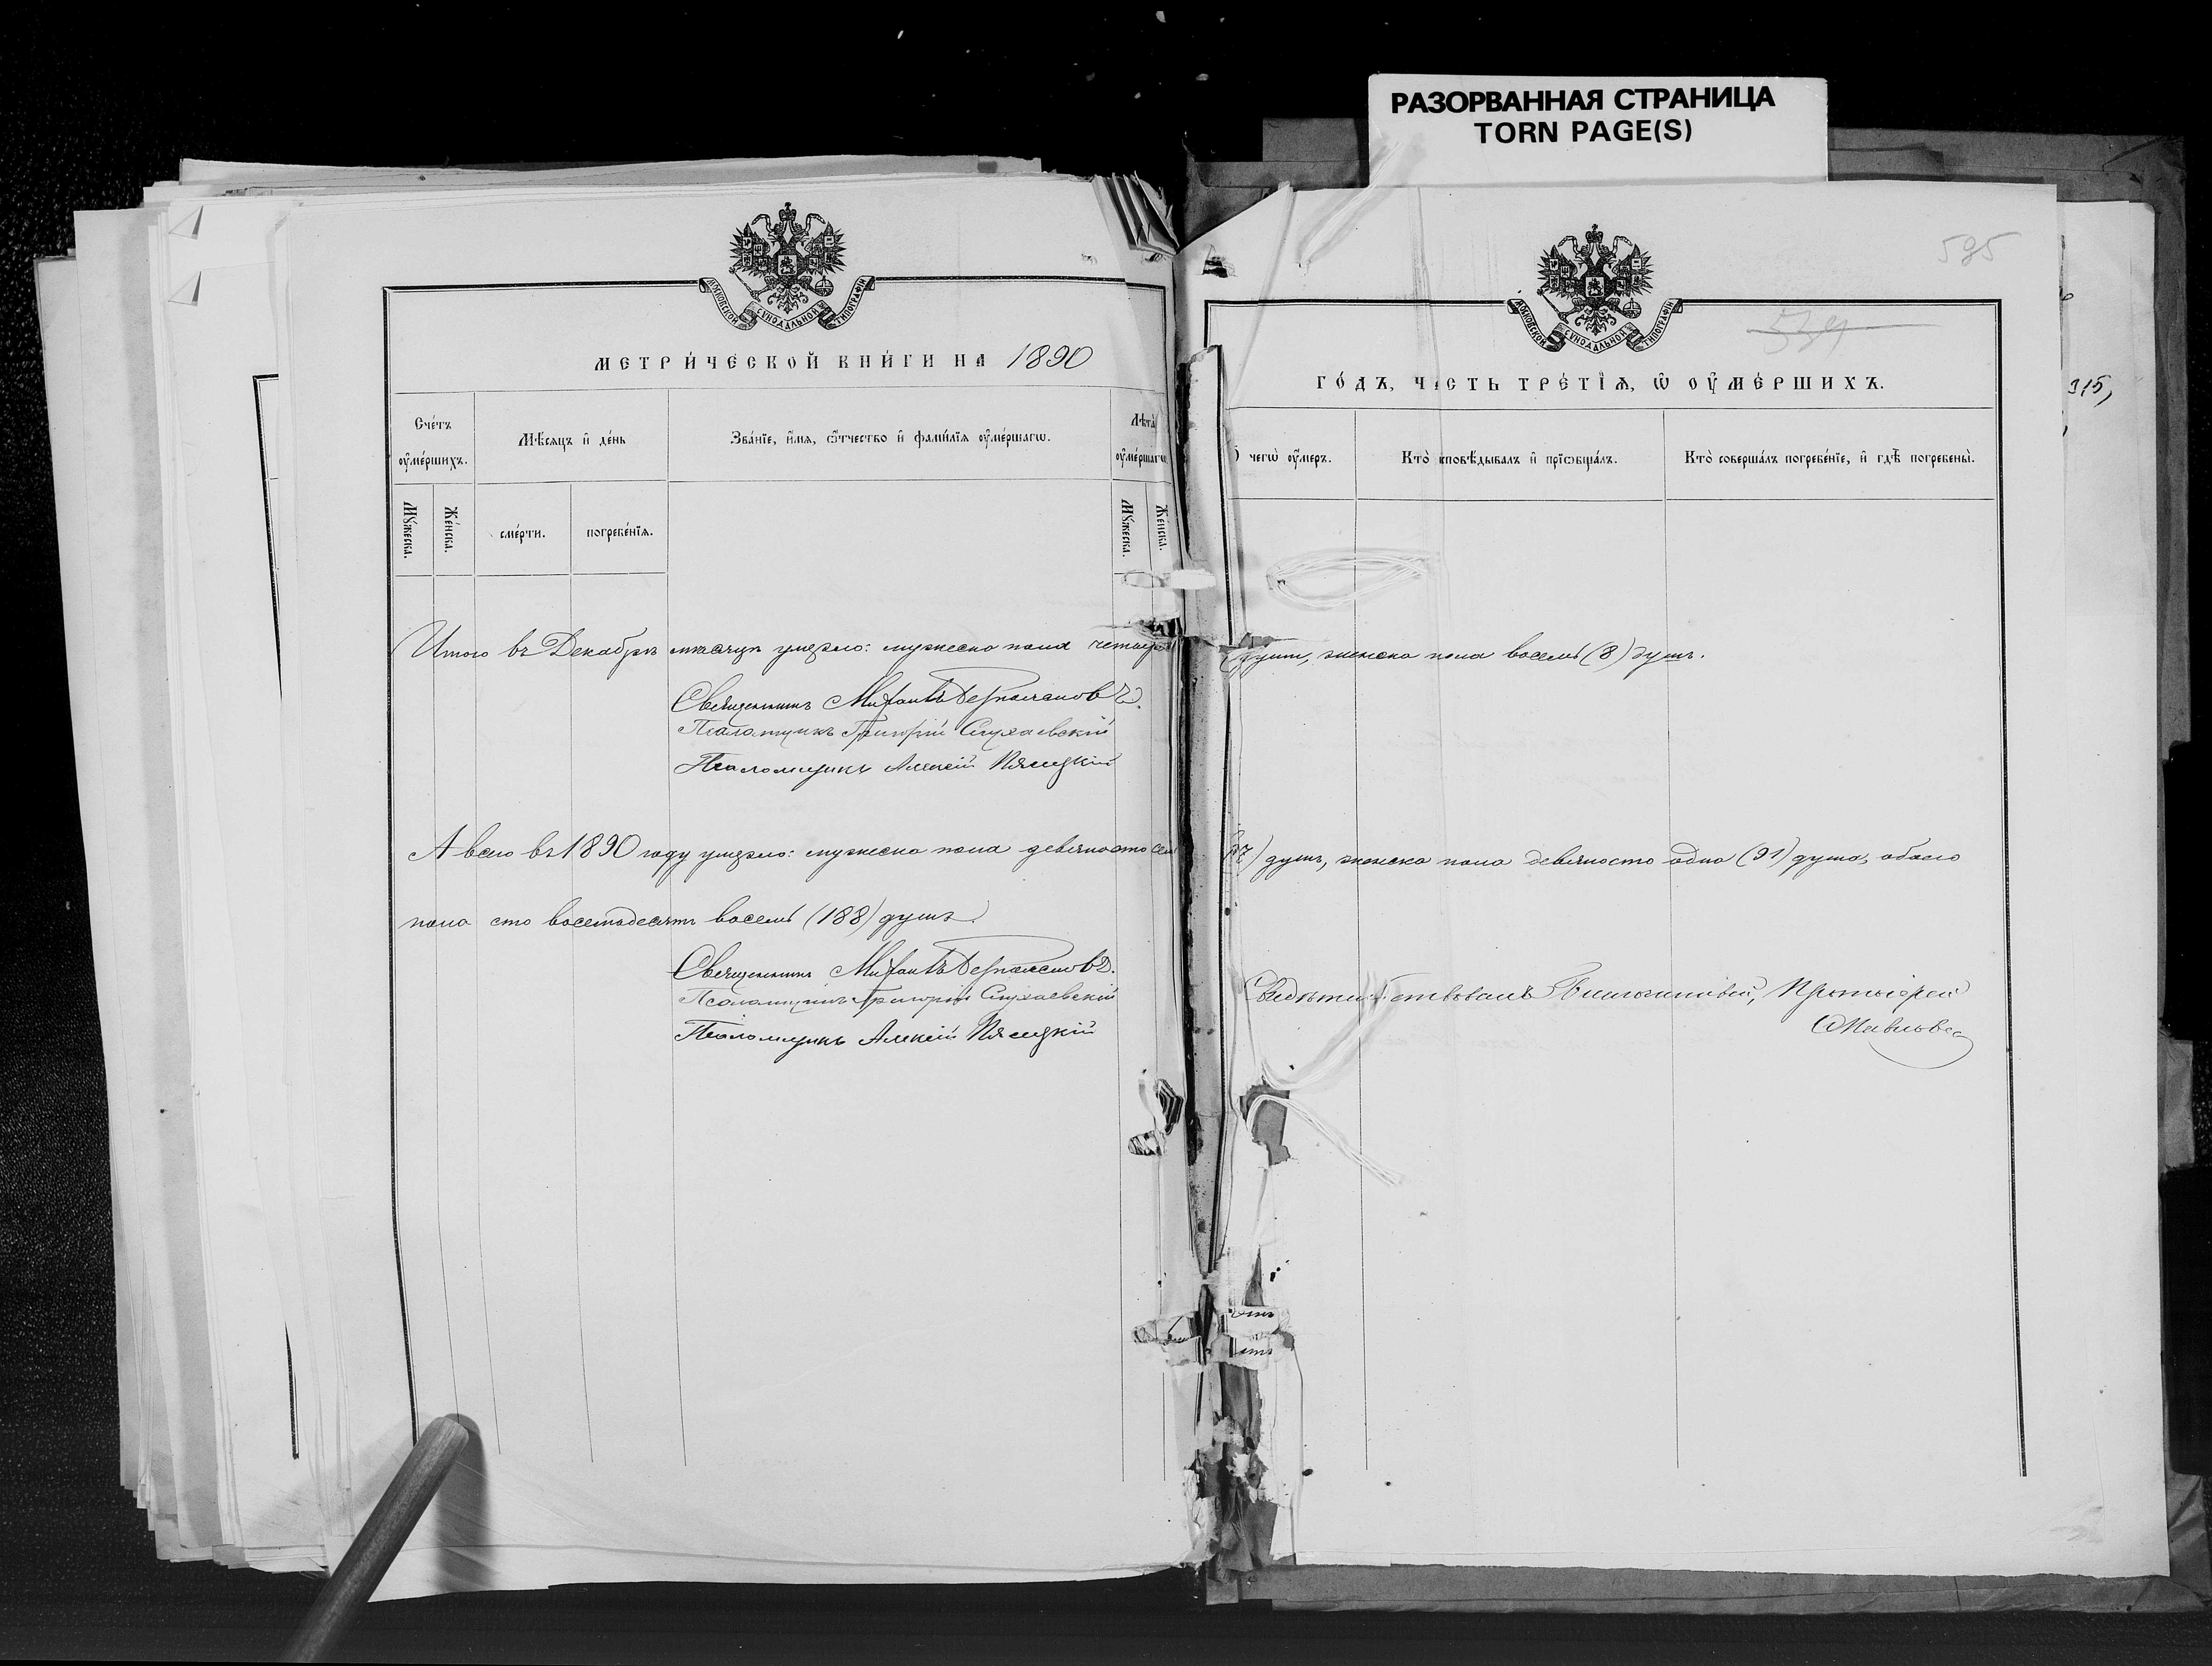 РАЗОРВАННАЯ СТРАНИЦА
TORN PAGE(S)
МОСКОВСКОЙ СѴНОДАЛЬНОЙ ТИПОГРАФІИ
МЕТРИ́ЧЕСКОЙ КНИ́ГИ НА 1890
Сче́тъ оу҆ме́ршихъ.
Мѣ́сяцъ и҆ де́нь
Зва́нїе, и҆́мѧ, ѻ҆́тчество и҆ фами́лїѧ оу҆ме́ршагѡ.
Лѣта̀ оу҆ме́ршагѡ.
Мꙋ́жеска.
Же́нска.
сме́рти.
погребе́нїѧ.
Мꙋ́жеска.
Же́нска.
Итого въ Декабрѣ мѣсяцѣ умерло: мужеска пола четыре
Священникъ Михаилъ
Псаломщикъ Григорій
Псаломщикъ Алексій
А всего въ 1890 году умерло: мужеска пола девяносто сем
пола сто восемьдесятъ восемь (188) душъ.
Священникъ Михаилъ
Псаломщикъ Григорій
Псаломщикъ Алексій
595
МОСКОВСКОЙ СѴНОДАЛЬНОЙ ТИПОГРАФІИ
ГО́ДЪ, ЧА́СТЬ ТРЕ́ТЇѦ, Ѡ҆ ОУ҆МЕ́РШИХЪ.
чегѡ̀ оу҆́меръ.
Кто̀ и҆сповѣ́дывалъ и҆ прїѡбща́лъ.
Кто̀ соверша́лъ погребе́нїе, и҆ гдѣ̀ погребены̀.
души, женска пола восемь (8) душъ.
душъ, женска пола девяносто одна (91) душа, обоего
Протоіерей
315,